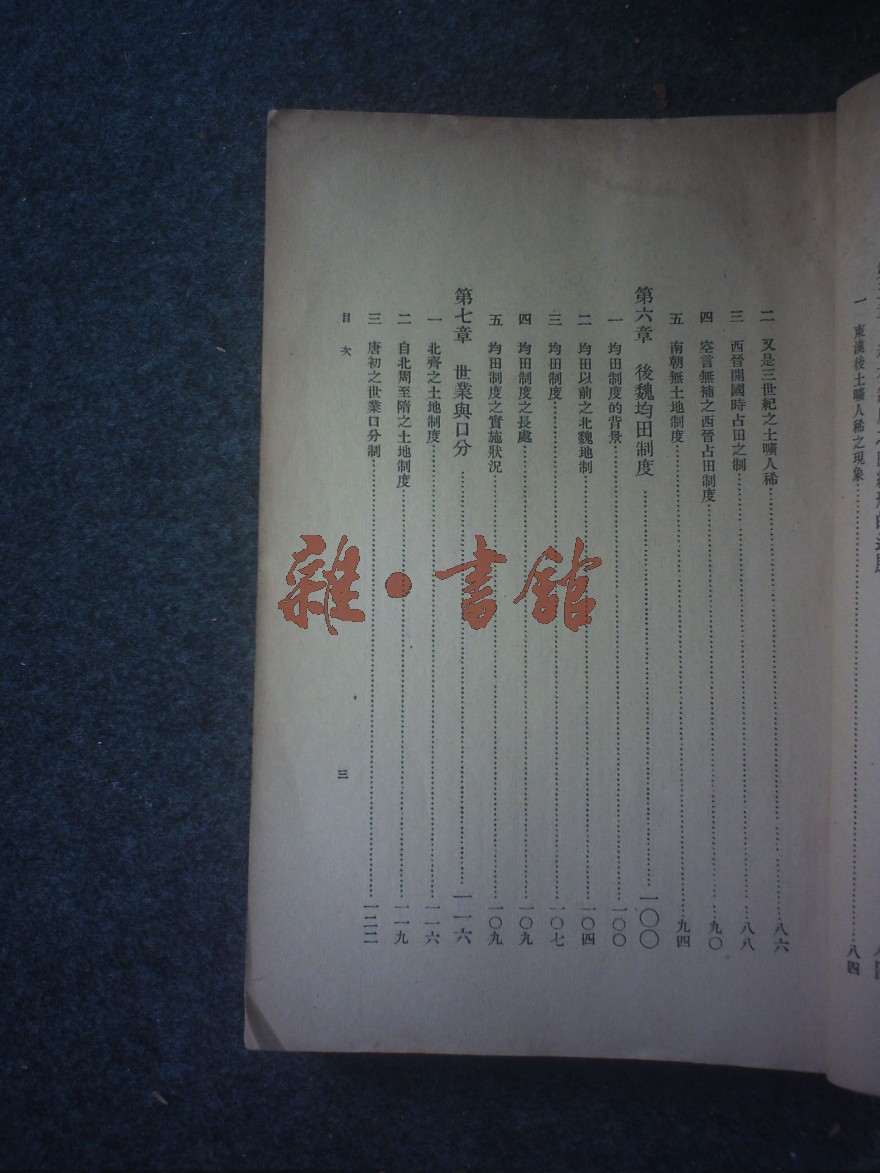 一 東漢後土曠人稀之現象……八四
二 又是三世紀之土曠人稀……八六
三 西晉開國時占田之制……八八
四 空言無補之西晉占田制度……九〇
五 南朝無土地制度……九四
第六章 後魏均田制度……一〇〇
一 均田制度的背景……一〇〇
二 均田以前之北魏地制……一〇四
三 均田制度……一〇七
四 均田制度之長處……一〇九
五 均田制度之實施狀況……一〇九
第七章 世業與口分……一一六
一 北齊之土地制度……一一六
二 自北周至隋之土地制度……一一九
三 唐初之世業口分制……一二二
目次 三
雜·書館